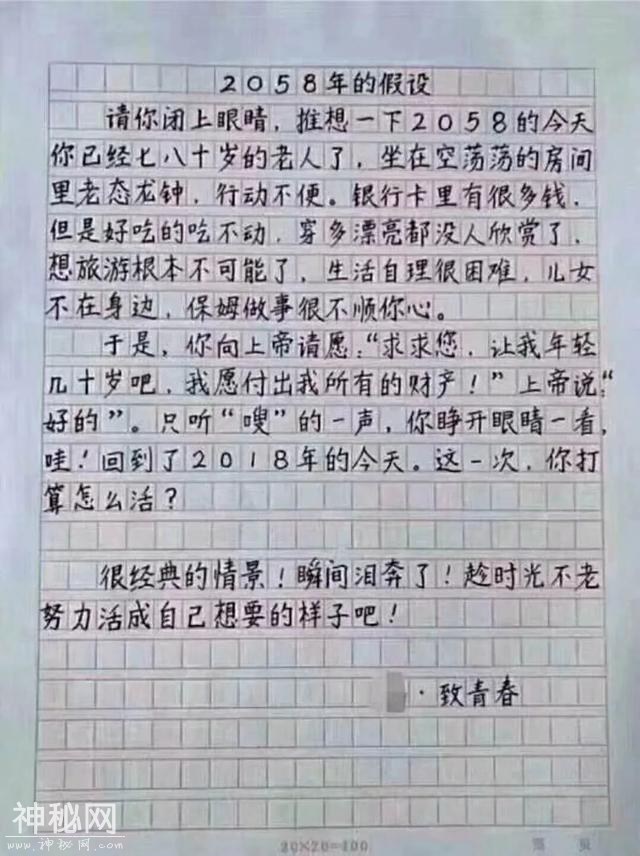 2058年的假设
请你闭上眼睛，推想一下2058的今天
你已经七八十岁的老人了，坐在空荡荡的房间
里老态龙钟，行动不便。银行卡里有很多钱，
但是好吃的吃不动，穿多漂亮都没人欣赏了，
想旅游根本不可能了，生活自理很困难，儿女
不在身边，保姆做事很不顺你心。
于是，你向上帝请愿：“求求您，让我年轻
几十岁吧，我愿付出我所有的财产！”上帝说：“
好的”。只听“嗖”的一声，你睁开眼睛一看，
哇！回到了2018年的今天。这一次，你打
算怎么活？
很经典的情景！瞬间泪奔了！趁时光不老
努力活成自己想要的样子吧！
·致青春
神秘网
www.神秘网.com
20×20=400
页